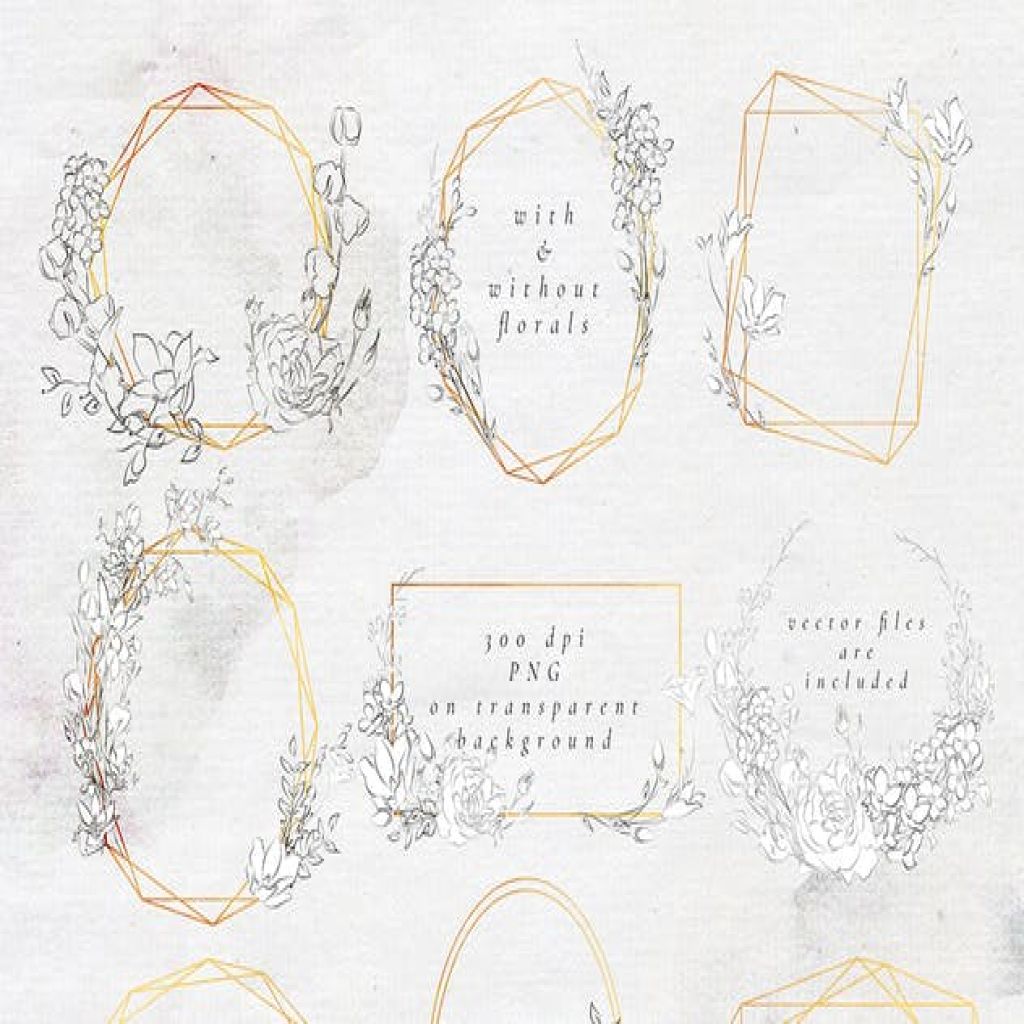 with
&
without
florals
300 dpi
PNG
on transparent
background
vector files
are
included